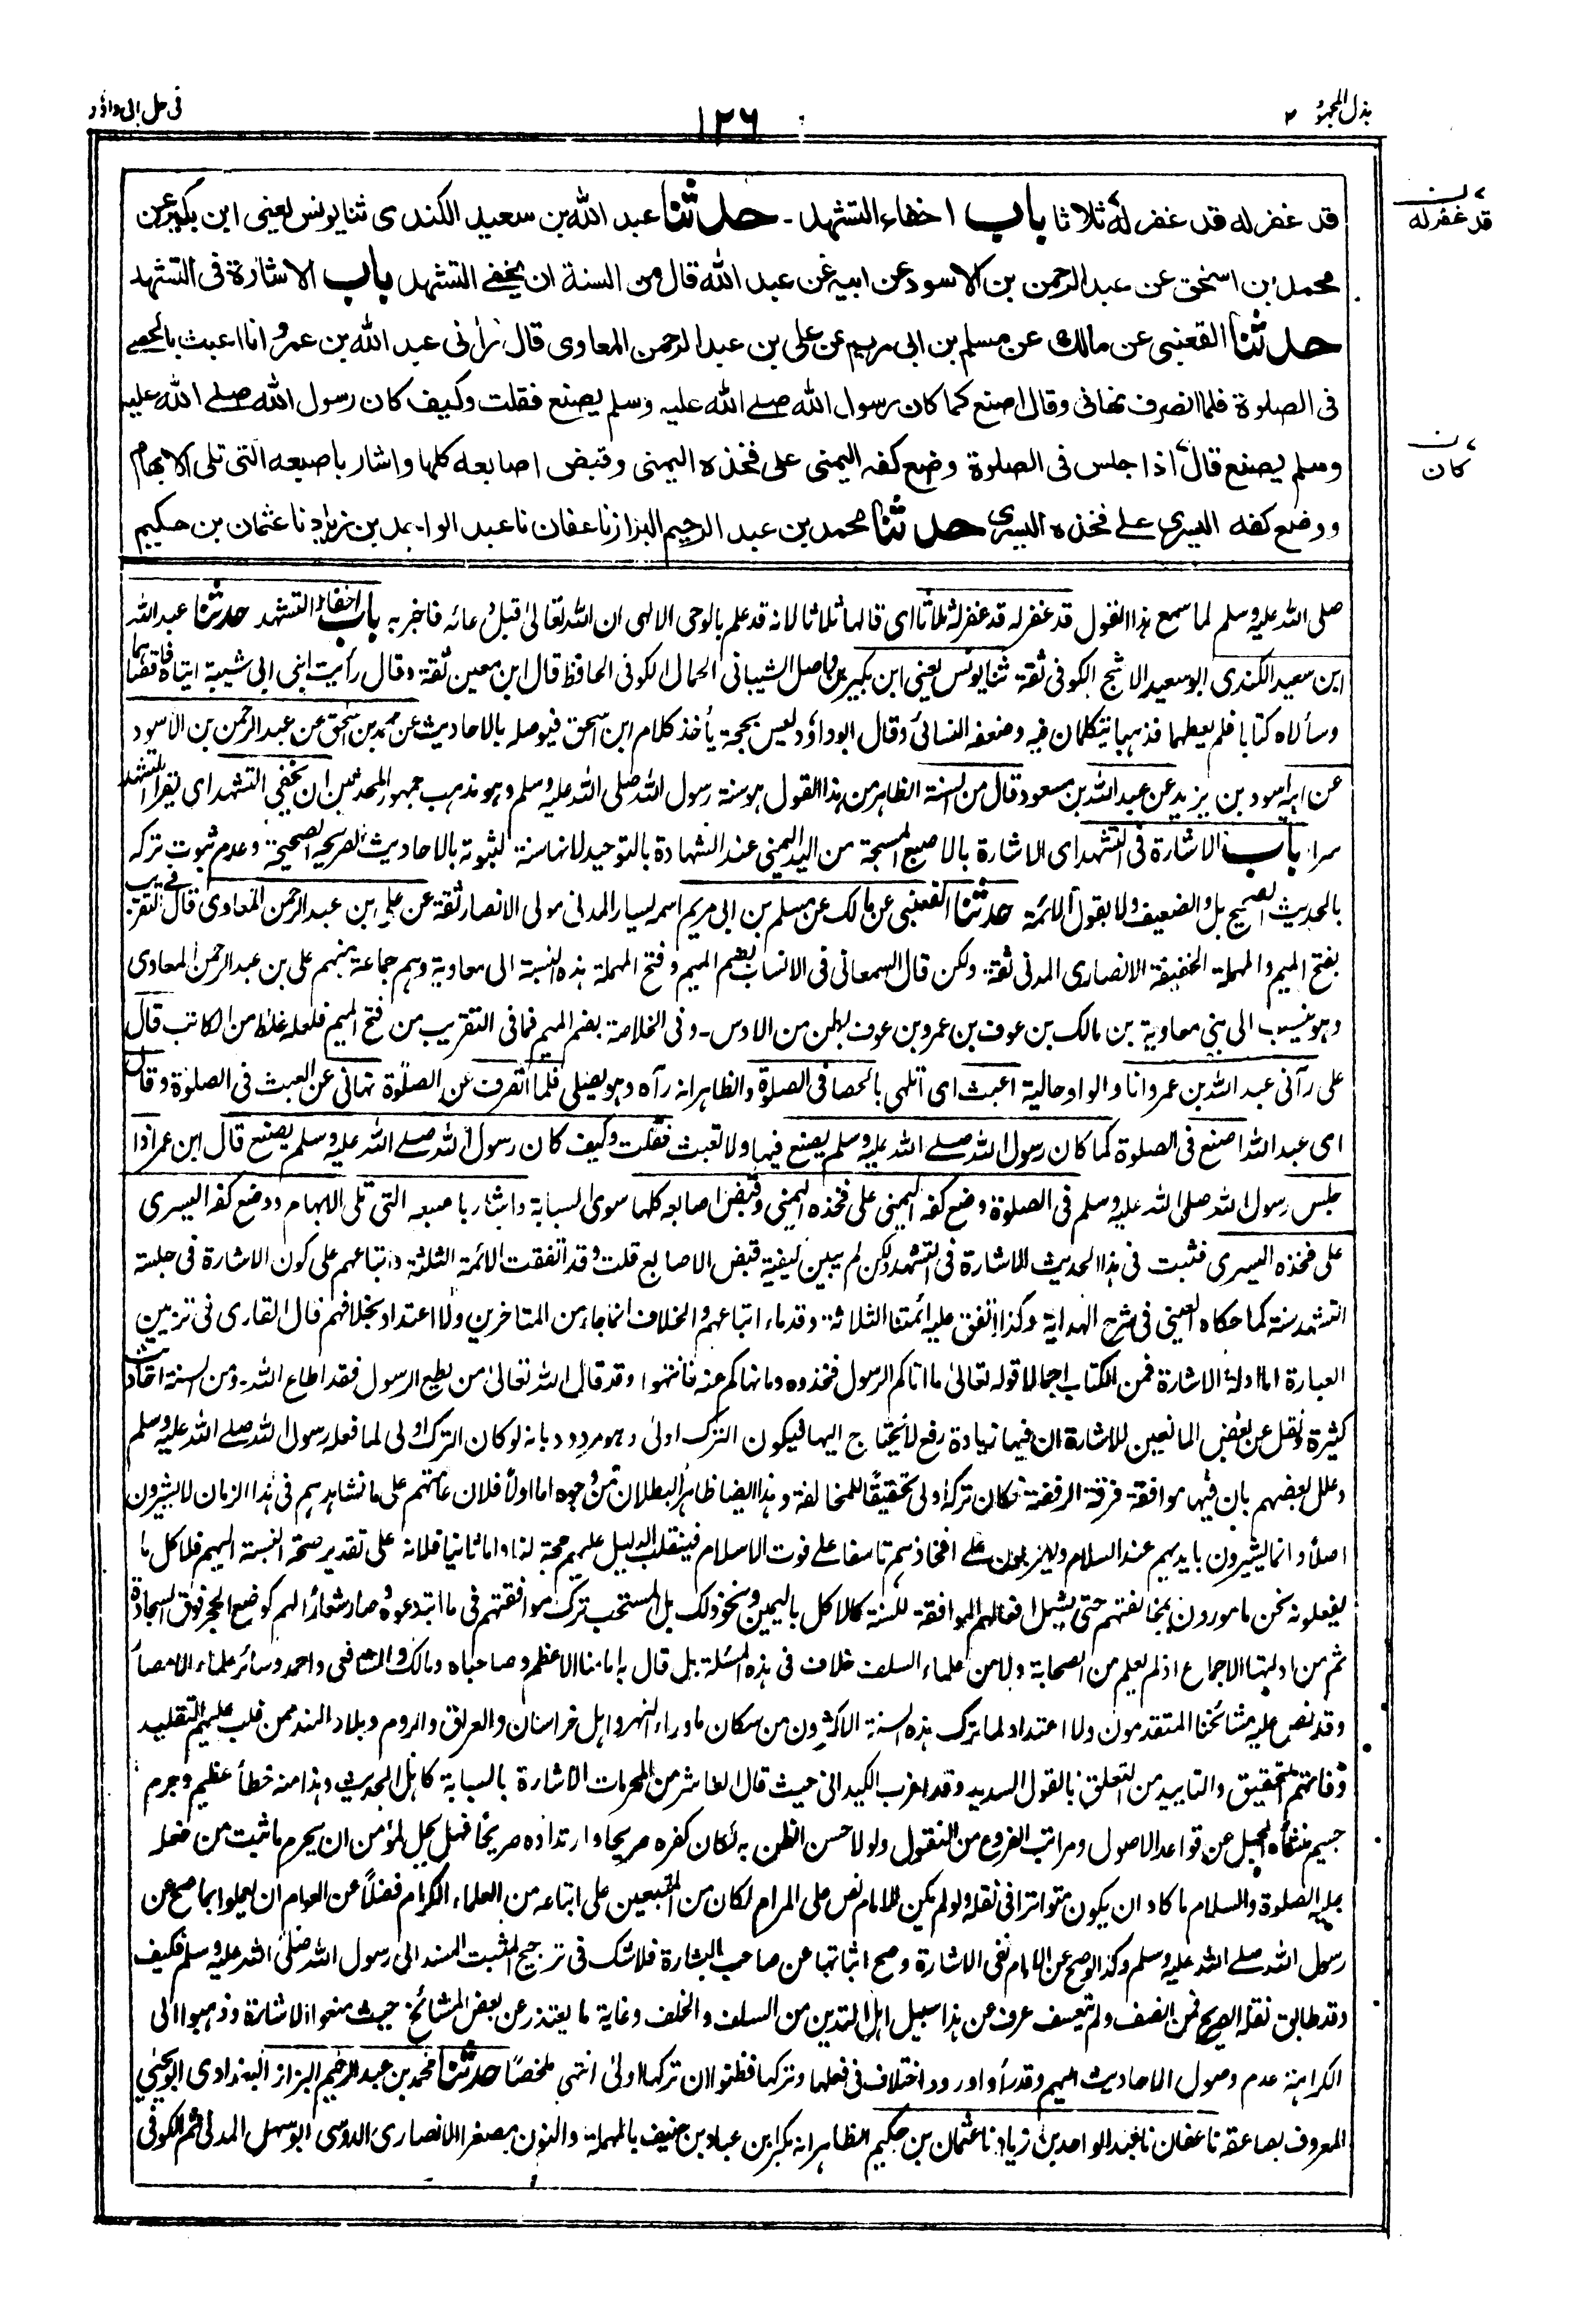 بذل المجهود ٢
١٢٦
فى حل ابى داؤد
قد غفر له قد غفر له ثلاثا باب اخفاء التشهد ۔ حدثنا عبد الله بن سعيد الكندى ثنا يونس يعنى ابن بكير عن
محمد بن اسحق عن عبد الرحمن بن الاسود عن ابيه عن عبد الله قال من السنة ان يخفى التشهد باب الاشارة فى التشهد
حدثنا القعنبى عن مالك عن مسلم بن ابى مريم عن على بن عبد الرحمن المعاوى قال رأنى عبد الله بن عمر وانا اعبث بالحصى
فى الصلوة فلما انصرف نهانى وقال اصنع كما كان رسول الله صلے الله عليه وسلم يصنع فقلت وكيف كان رسول الله صلے الله عليه
وسلم يصنع قال اذا جلس فى الصلوة وضع كفه اليمنى على فخذه اليمنى وقبض اصابعه كلها واشار باصبعه التى تلى الابهام
ووضع كفه اليسرى علے فخذه اليسرى حدثنا محمد بن عبد الرحيم البزاز نا عفان نا عبد الواحد بن زياد نا عثمان بن حكيم
ن
قد غفر له
ن
كان
صلى الله عليه وسلم لما سمع هذا القول قد غفر له قد غفر له ثلاثا اى قالها ثلاثا لانه قد علم بالوحى الالهى ان الله تعالى قبل دعائه فاخبر به باب اخفاء التشهد حدثنا عبد الله
ابن سعيد الكندى ابو سعيد الاشج الكوفى ثقة ثنا يونس يعنى ابن بكير بن واصل الشيبانى الحمال الكوفى الحافظ قال ابن معين ثقة وقال رأيت ابنى ابى شيبة اتياه فاقصاهما
وسألاه كتابا فلم يعطهما فذهبا يتكلمان فيه وضعفه النسائى وقال ابو داؤد ليس بحجة يأخذ كلام ابن اسحق فيوصله بالاحاديث عن محمد بن اسحق عن عبد الرحمن بن الاسود
عن ابيه اسود بن يزيد عن عبد الله بن مسعود قال من السنة الظاهر من هذا القول هو سنة رسول الله صلى الله عليه وسلم وهو مذهب جمهور المحدثين ان يخفى التشهد اى يقرأ التشهد
سرا ۔ باب الاشارة فى التشهد اى الاشارة بالاصبع المسبحة من اليد اليمنى عند الشهادة بالتوحيد لانها سنة لثبوته بالاحاديث الصريحة الصحيحة وعدم ثبوت تركه
بالحديث الصحيح بل والضعيف ولا بقول الائمة حدثنا القعنبى عن مالك عن مسلم بن ابى مريم اسمه يسار المدنى مولى الانصار ثقة عن على بن عبد الرحمن المعاوى قال فى التقريب
بفتح الميم والمهملة الخفيفة الانصارى المدنى ثقة ولكن قال السمعانى فى الانساب بضم الميم وفتح المهملة هذه النسبة الى معاوية وهم جماعة منهم على بن عبد الرحمن المعاوى
وهو منسوب الى بنى معاوية بن مالك بن عوف بن عمرو بن عوف بطن من الاوس ۔ وفى الخلاصة بضم الميم فما فى التقريب من فتح الميم فلعله غلط من الكاتب قال
على رآنى عبد الله بن عمر وانا والواو حالية اعبث اى اتلهى بالحصا فى الصلوة والظاهر انه رآه وهو يصلى فلما انصرف عن الصلوة نهانى عن العبث فى الصلوة وقال
اى عبد الله اصنع فى الصلوة كما كان رسول الله صلے الله عليه وسلم يصنع فيها ولا تعبث فقلت وكيف كان رسول الله صلے الله عليه وسلم يصنع قال ابن عمر اذا
جلس رسول الله صلى الله عليه وسلم فى الصلوة وضع كفه اليمنى على فخذه اليمنى وقبض اصابعه كلها سوى السبابة واشار باصبعه التى تلى الابهام ووضع كفه اليسرى
على فخذه اليسرى فثبت فى هذا الحديث الاشارة فى التشهد ولكن لم يبين كيفية قبض الاصابع قلت وقد اتفقت الائمة الثلثة واتباعهم على كون الاشارة فى جلسة
التشهد سنة كما حكاه العينى فى شرح الهداية وكذا اتفق عليه ائمتنا الثلاثة وقدماء اتباعهم والخلاف انما جاء من المتاخرين ولا اعتداد بخلافهم قال القارى فى تزيين
العبارة اما ادلة الاشارة فمن الكتاب اجمالا قوله تعالى ما اتاكم الرسول فخذوه وما نهاكم عنه فانتهوا وقد قال الله تعالى من يطع الرسول فقد اطاع الله ۔ ومن السنة احاديث
كثيرة ونقل عن بعض المانعين للاشارة ان فيها زيادة رفع لا يحتاج اليها فيكون الترك اولى وهو مردود بانه لو كان الترك اولى لما فعله رسول الله صلے الله عليه وسلم
وعلل بعضهم بان فيها موافقة فرقة الرفضة فكان تركه اولى تحقيقا للمخالفة وهذا ايضا ظاهر البطلان من وجوه اما اولا فلان عامتهم على ما نشاهدهم فى هذا الزمان لا يشيرون
اصلا وانما يشيرون بايديهم عند السلام ويضربون على افخاذهم تاسفا على فوت الاسلام فينقلب الدليل عليهم حجة لنا واما ثانيا فلانه على تقدير صحة النسبة اليهم فلا كل ما
يفعلونه نحن مامورون بمخالفتهم حتى يشمل افعالهم الموافقة للسنة كالاكل باليمين ونحو ذلك بل المستحب ترك موافقتهم فى ما ابتدعوه وصار شعارا لهم كوضع الحجر فوق السجادة
ثم من ادلتها الاجماع اذ لم يعلم من الصحابة ولا من علماء السلف خلاف فى هذه المسئلة بل قال به امامنا الاعظم وصاحباه ومالك والشافعى واحمد وسائر علماء الامصار
وقد نص عليه مشائخنا المتقدمون ولا اعتداد لما ترك هذه السنة الاكثرون من سكان ما وراء النهر واهل خراسان والعراق والروم وبلاد الهند ممن غلب عليهم التقليد
وفاتهم التحقيق والتاييد من التعلق بالقول السديد وقد اغرب الكيدانى حيث قال العاشر من المحرمات الاشارة بالسبابة كاهل الحديث وهذا منه خطأ عظيم وجرم
جسيم منشأه الجهل عن قواعد الاصول ومراتب الفروع من النقول ولولا حسن الظن به لكان كفره صريحا وارتداده صريحا فهل يحل لمؤمن ان يحرم ما ثبت من فعله
عليه الصلوة والسلام ما كاد ان يكون متواترا فى نقله ولو لم يكن للامام نص على المرام لكان من المتبعين على اتباعه من العلماء الكرام فضلا عن العوام ان يعملوا بما صح عن
رسول الله صلے الله عليه وسلم وكذا لو صح عن الامام نفى الاشارة وصح اثباتها عن صاحب البشارة فلا شك فى ترجيح المثبت المسند الى رسول الله صلى الله عليه وسلم فكيف
وقد طابق نقله الصريح فمن انصف ولم يتعسف عرف عن هذا سبيل اهل التدين من السلف والخلف وغاية ما يعتذر عن بعض المشائخ حيث منعوا الاشارة وذهبوا الى
الكراهة عدم وصول الاحاديث اليهم وقد رأوا ورود اختلاف فى فعلها وتركها فظنوا ان تركها اولى انتهى ملخصا حدثنا محمد بن عبد الرحيم البزاز البغدادى ابو يحيى
المعروف بصاعقة نا عفان نا عبد الواحد بن زياد نا عثمان بن حكيم الظاهر انه بكر ابن عباد بن حنيف بالمهملة والنون مصغر الانصارى الاوسى ابو سهل المدنى ثم الكوفى